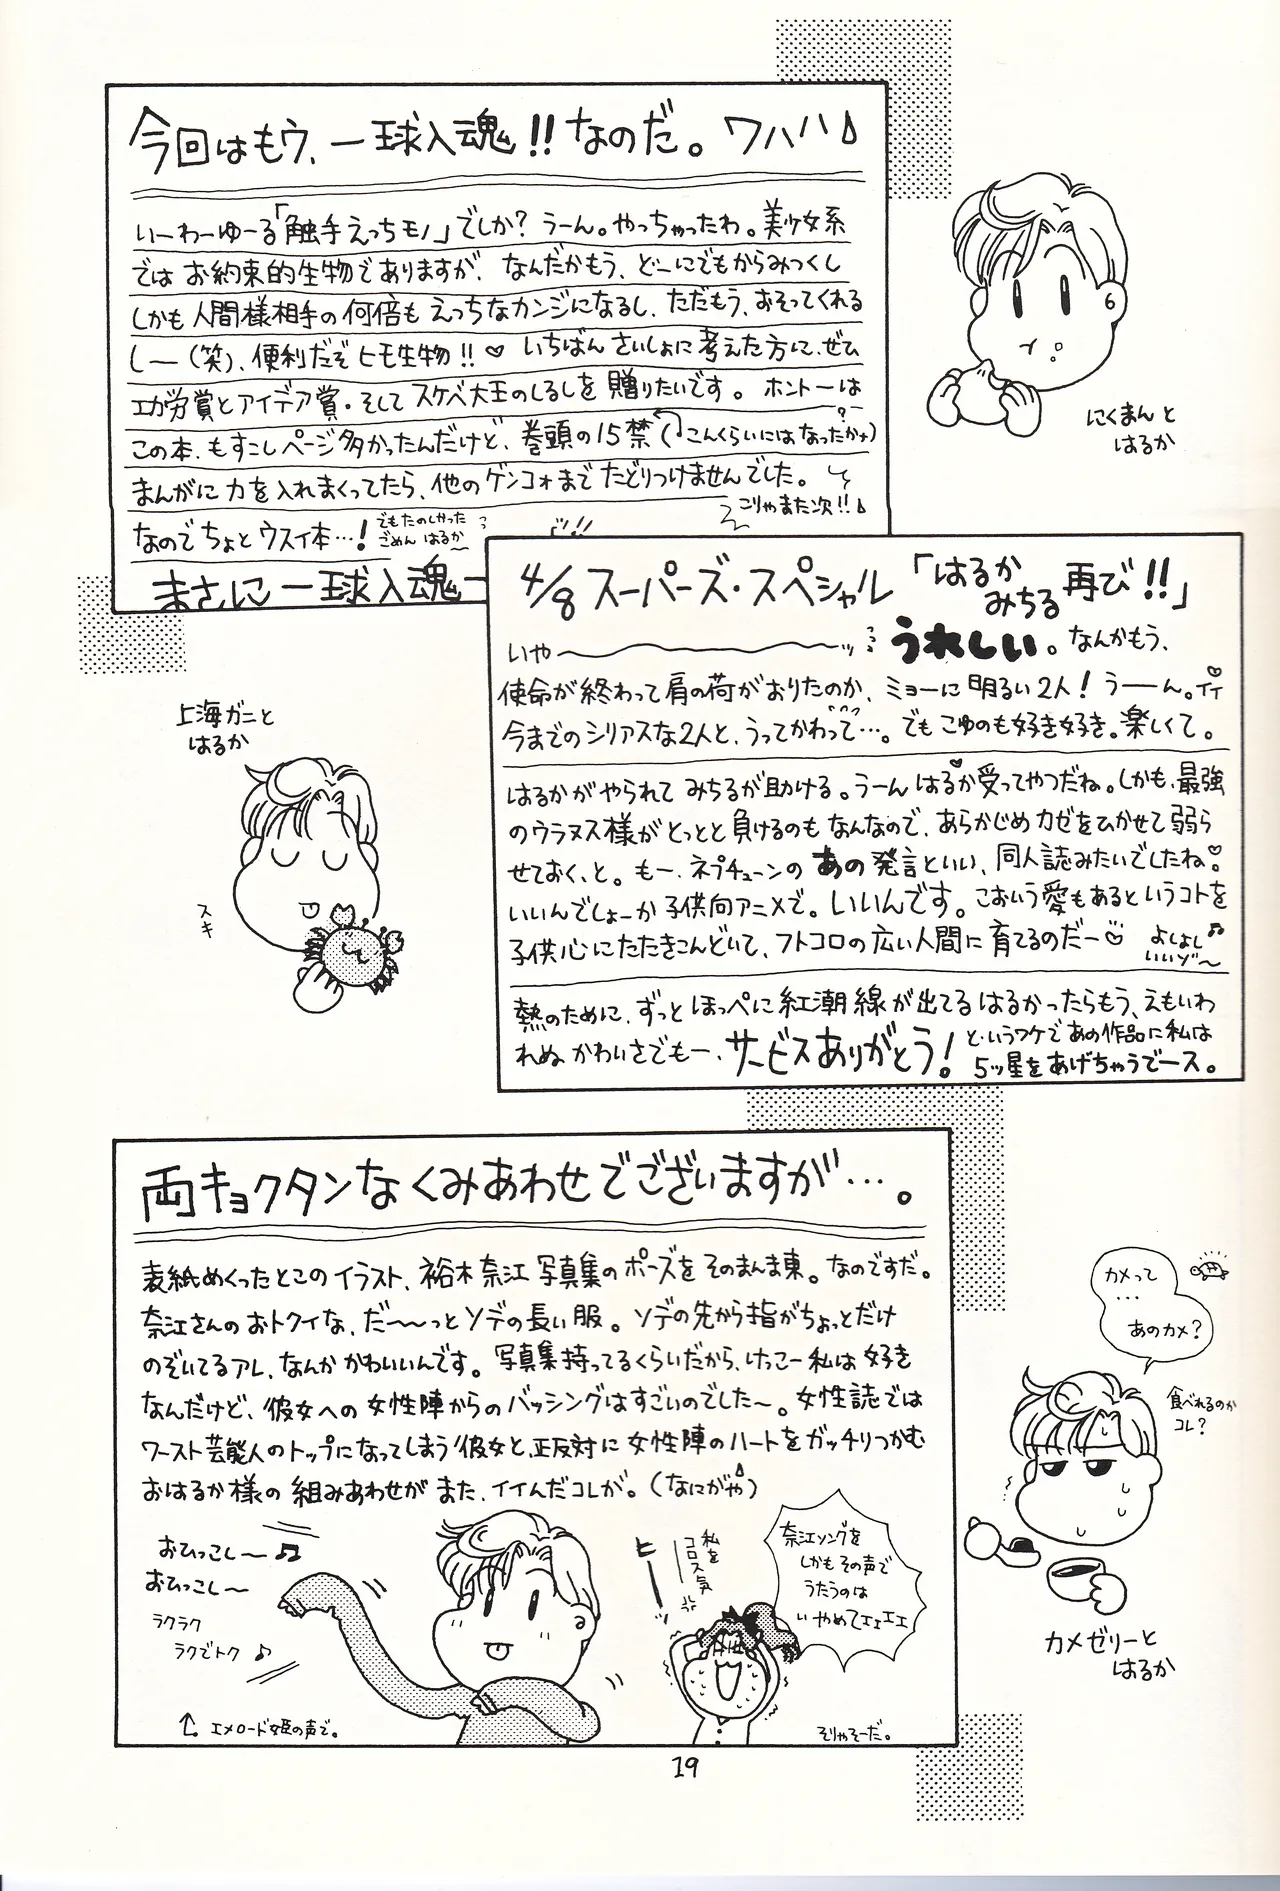 今回はもウ、一球入魂!!なのだ。ワハハ♪
いーわーゆーる「触手えっちモノ」でしか?うーん。やっちゃったわ。美少女系
ではお約束的生物でありますが、なんだかもう、どーにでもからみつくし
しかも人間様相手の何倍もえっちなカンジになるし、ただもう、おそってくれる
しー(笑)、便利だぞヒモ生物!!♡いちばんさいしょに考えた方に、ぜひ
エガ労賞とアイデア賞・そしてスケベ大王のしるしを贈りたいです。ホントーは
この本、もすこしページ多かったんだけど、巻頭の15禁(こんくらいにはなったかナ?)
まんがに力を入れまくってたら、他のゲンコォまでたどりつけませんでした。
こりゃまた次!!♪
なのでちょとウスイ本…!でもたのしかった
ごめんはるか〜
まさに一球入魂ー
にくまんと
はるか
4/8スーパーズ・スペシャル「はるか
みちる再び!!」
いや〜ッ うれしい。なんかもう、
使命が終わって肩の荷がおりたのか、ミョーに明るい2人!うーん。イイ♡
今までのシリアスな2人と、うってかわって…。でもこゆのも好き好き。楽しくて。
はるかがやられてみちるが助ける。うーんはるか受ってやつだね。♡しかも、最強
のウラヌス様がとっとと負けるのもなんなので、あらかじめカゼをひかせて弱ら
せておく、と。もー、ネプチューンのあの発言といい、同人誌みたいでしたね♡。
いいんでしょーか子供向アニメで。いいんです。こおいう愛もあるというコトを
子供心にたたきこんどいて、フトコロの広い人間に育てるのだー♡ よしよし♪
いいゾ〜
熱のために、ずっとほっぺに紅潮線が出てるはるかったらもう、えもいわ
れぬかわいさでもー、サービスありがとう!というワケであの作品に私は
5ッ星をあげちゃうでース。
上海ガニと
はるか
スキ
両キョクタンなくみあわせでございますが…。
表紙めくったとこのイラスト、裕木奈江写真集のポーズをそのまんま東。なのですだ。
奈江さんのおトクイな、だ〜〜っとソデの長い服。ソデの先から指がちょっとだけ
のぞいてるアレ、なんかかわいいんです。写真集持ってるくらいだから、けっこー私は好き
なんだけど、彼女への女性陣からのバッシングはすごいのでした〜。女性誌では
ワースト芸能人のトップになってしまう彼女と、正反対に女性陣のハートをガッチリつかむ
おはるか様の組みあわせがまた、イイんだコレが。(なにがや)
おひっこし〜♫
おひっこし〜
ラクラク
ラクでトク♪
エメロード姫の声で。
私を
コロス気
ヒーーッ
奈江ソングを
しかもその声で
うたうのは
いやめてエェエエ
そりゃそーだ。
カメって
…
あのカメ?
食べれるのか
コレ?
カメゼリーと
はるか
19